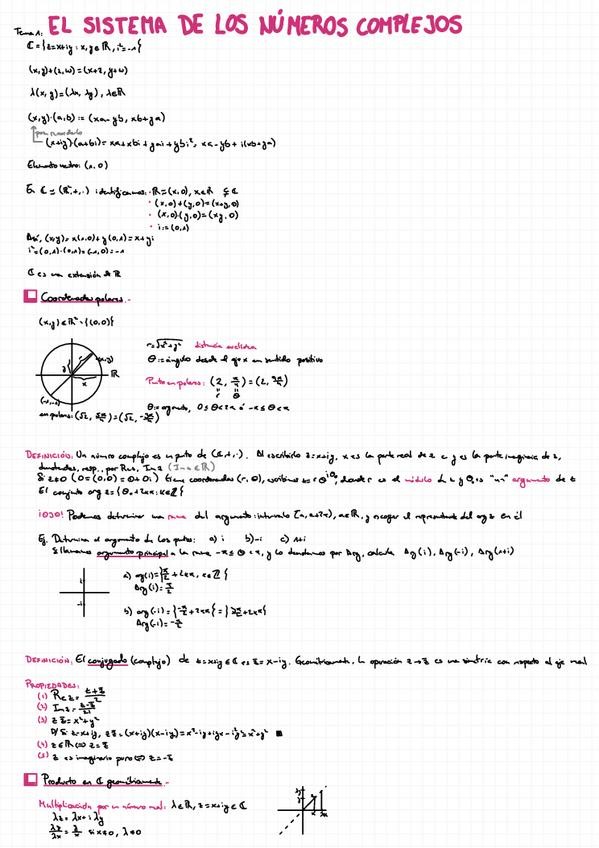 Tema 1: EL SISTEMA DE LOS NÚMEROS COMPLEJOS
ℂ = {z=x+iy : x,y∈ℝ, i²=-1}
(x,y)+(z,w)=(x+z, y+w)
λ(x,y)=(λx, λy), λ∈ℝ
(x,y)·(a,b) := (xa-yb, xb+ya)
(x+iy)·(a+bi)= xa+xbi+yai+ybi², xa-yb + i(xb+ya)
Elemento neutro: (1,0)
En ℂ = (ℝ²,+,·) identificamos: ·ℝ=(x,0), x∈ℝ ⊊ ℂ
· (x,0)+(y,0)=(x+y,0)
· (x,0)·(y,0)=(xy,0)
· i:=(0,1)
Así, (x,y)= x(1,0)+y(0,1)=x+yi
i²=(0,1)·(0,1)=(-1,0)=-1
ℂ es una extensión de ℝ
Coordenadas polares.-
(x,y)∈ℝ²-{(0,0)}
r=√x²+y² distancia euclídea
θ=ángulo desde el eje x en sentido positivo
(x,y)
r
y
x
ℝ
Punto en polares: (2, π/2)
r θ
(-1,-1)
en polares: (√2, 5π/4)=(√2, -3π/4)
θ: argumento, 0≤θ<2π ó -π≤θ<π
DEFINICIÓN: Un número complejo es un punto de (ℂ,+,·). Al escribirlo z=x+iy, x es la parte real de z e y es la parte imaginaria de z,
denotadas, resp., por Re z, Im z (Im z∈ℝ)
Si z≠0 (0=(0,0)=0+0i) tiene coordenadas (r,θ), escribimos donde r es el módulo de z y θ es "un" argumento de z
El conjunto arg z={θ+2πk: k∈ℤ}
¡OJO! Podemos determinar una rama del argumento: intervalo [a,a+2π), a∈ℝ, y escoger el representante del arg z en él
Ej. Determina el argumento de los puntos: a) i b) -i c) 1+i
Si llamamos argumento principal a la rama -π≤θ<π, y lo denotamos por Arg, calcula Arg(i), Arg(-i), Arg(1+i)
a) arg(i)={π/2+2πk, k∈ℤ}
Arg(i)=π/2
b) arg(-i)={-π/2+2πk}={3π/2+2πk}
Arg(-i)=-π/2
DEFINICIÓN: El conjugado (complejo) de z=x+iy∈ℂ es z̄=x-iy. Geométricamente, la operación z→z̄ es una simetría con respecto al eje real
PROPIEDADES:
(1) Re z = (z+z̄)/2
(2) Im z = (z-z̄)/2i
(3) z z̄= x²+y²
D/ Si z=x+iy, z z̄=(x+iy)(x-iy)=x²-ixy+iyx-i²y²=x²+y² ■
(4) z∈ℝ ⟺ z=z̄
(5) z es imaginario puro ⟺ z=-z̄
Producto en ℂ geométricamente.-
Multiplicación por un número real: λ∈ℝ, z=x+iy∈ℂ
λz= λx+iλy
λy/λx = y/x si x≠0, λ≠0